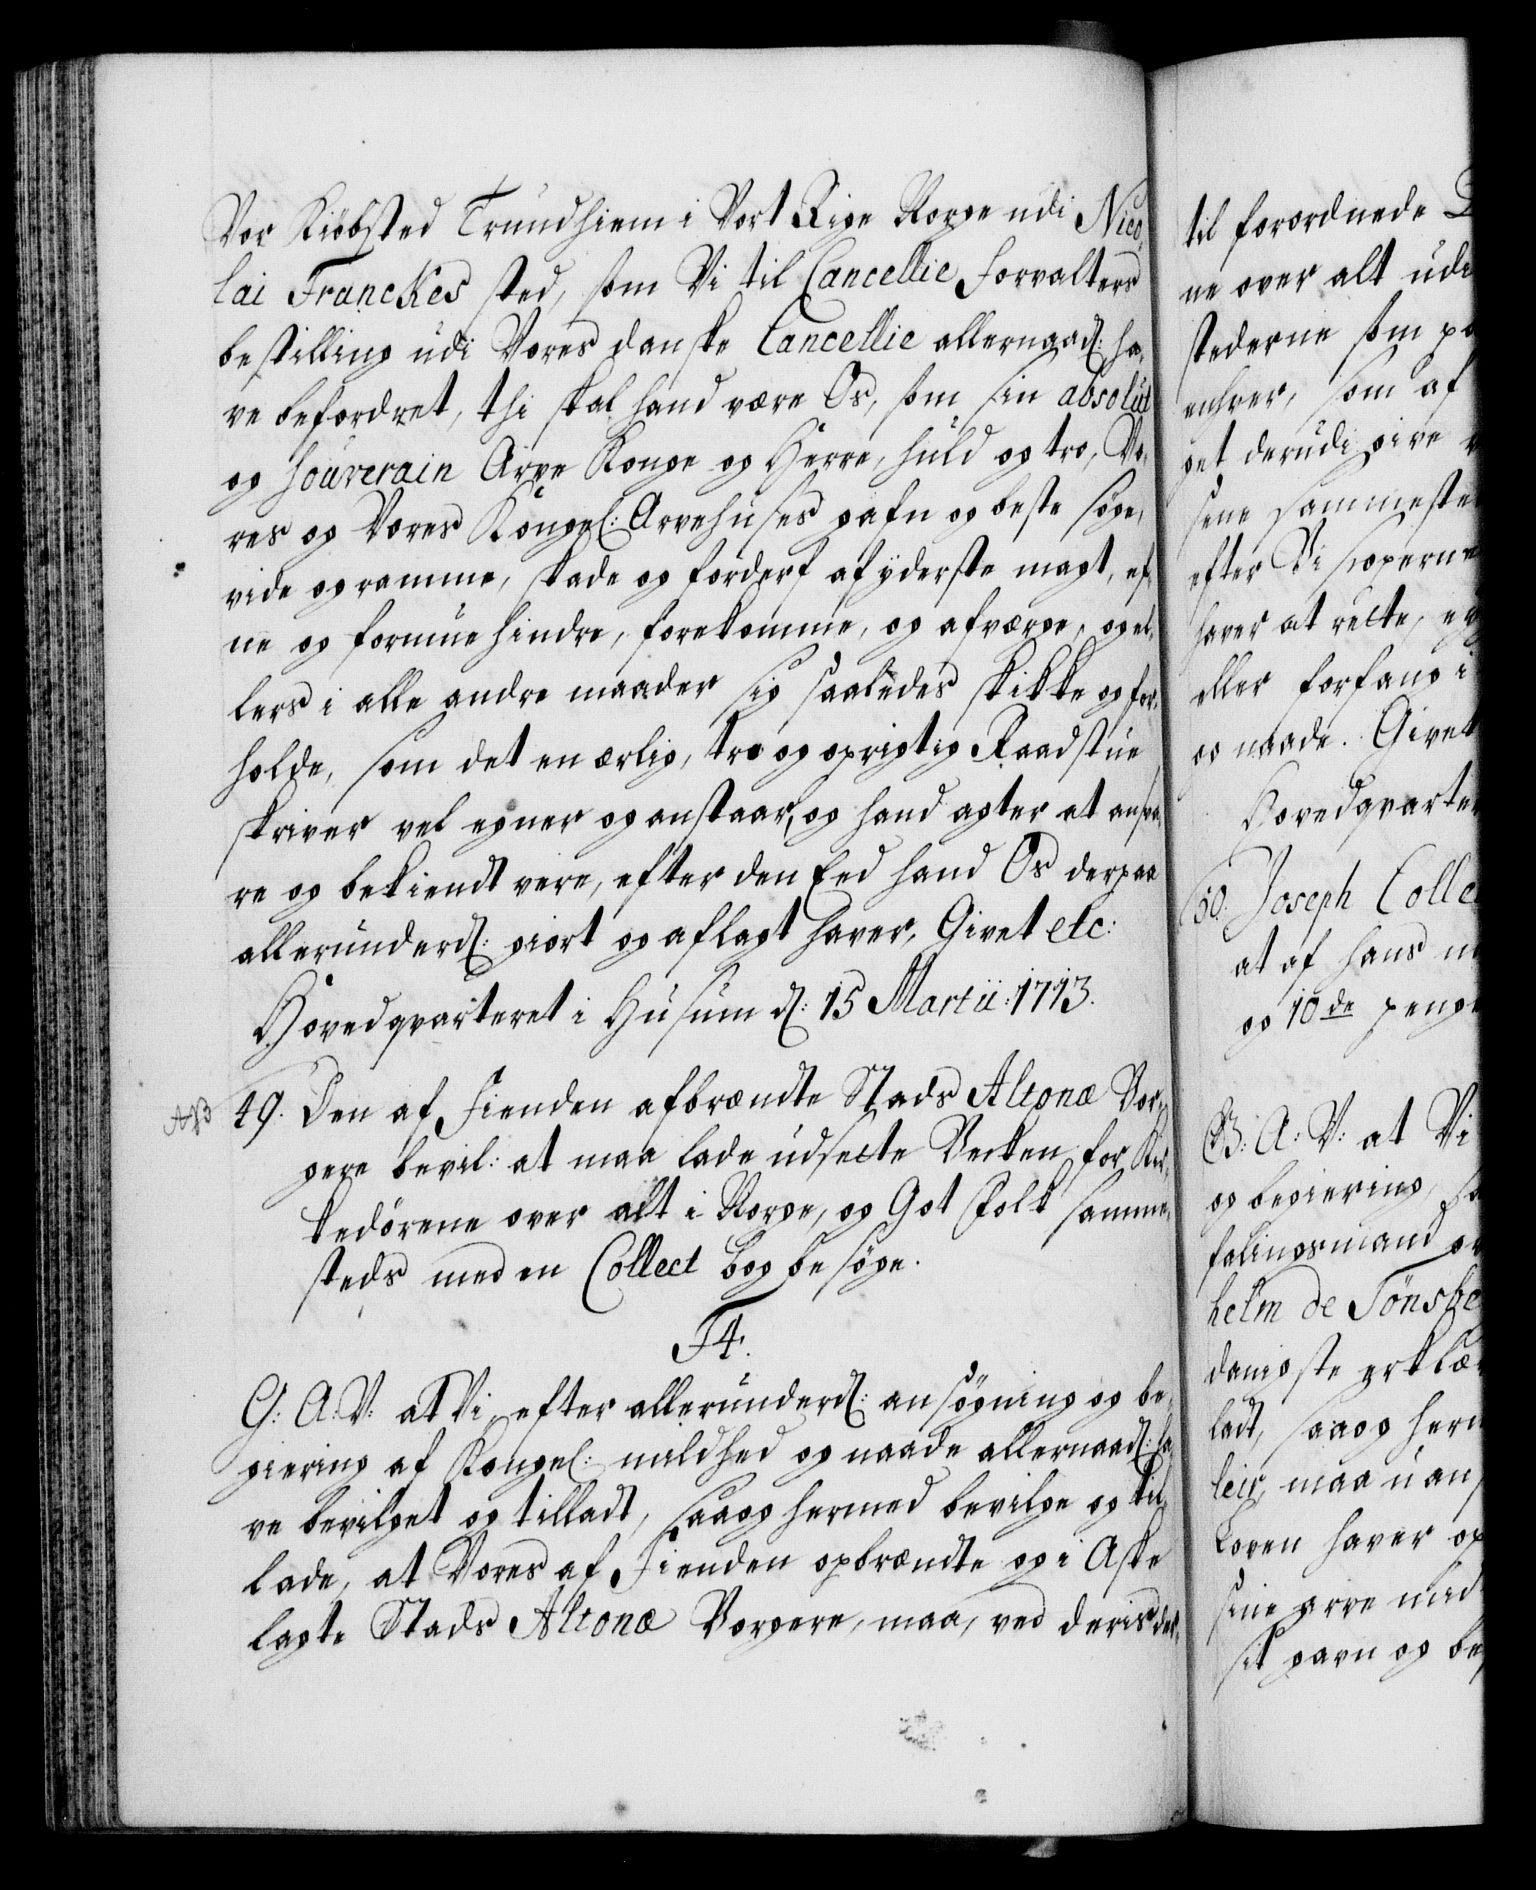 Vor Kiöbsted Trundhiem i Vort Rige Norge udi Nico,
lai Franckes sted, som Vi til Cancellie Forvalters
bestilling udi Vores danske Cancellie allernaad: ha,
ve befordret, thi skal hand være Os, som sin absolut
og souverain Arve Konge og Herre, huld og tro, Vo,
res og Vores Kongel: Arvehuses gafn og beste söge,
vide og ramme, skade og forderf af yderste magt, ef,
ne og formue hindre, forekomme, og afværge, og el,
lers i alle andre maader sig saaledes skikke og for,
holde, som det en ærlig, tro og oprigtig Raadstue
skriver vel egner og anstaar, og hand agter at ansva,
re og bekiendt vere, efter den Eed hand Os derpaa
allerunderd: giort og aflagt haver, Givet etc:
Hovedqvarteret i Husum d: 15 Martii: 1713.
NB 49. Den af Fienden afbrændte Stads Altonæ Bor,
gere bevil: at maa lade udsette Becken for Kir,
kedörene over alt i Norge, og Got Folk samme,
steds med en Collect bog besöge.
F4.
G: A: V: at Vi, efter allerunderd: ansögning og be,
giering af Kongel: mildhed og naade allernaad: ha,
ve bevilget og tilladt, saa og hermed bevilge og til,
lade, at Vores af Fienden opbrændte og i Aske
lagte Stads Altonæ Borgere, maa, ved deris der,
til forordnede
ne over alt udi
stederne som
enhver, som af
get derudi give
sene sammeste
efter Vi
haver at rette,
eller forfang i
og naade. Givet
Hovedqvarter
50. Joseph Colle
at af hans
og 10de penge
G: A: V: at Vi
og begiering,
falingsmand
helm de Tönsbe
danigste erklæ
ladt, saa og herm
leir, maa uan
Loven haver op
sine arve med
sit gavn og be